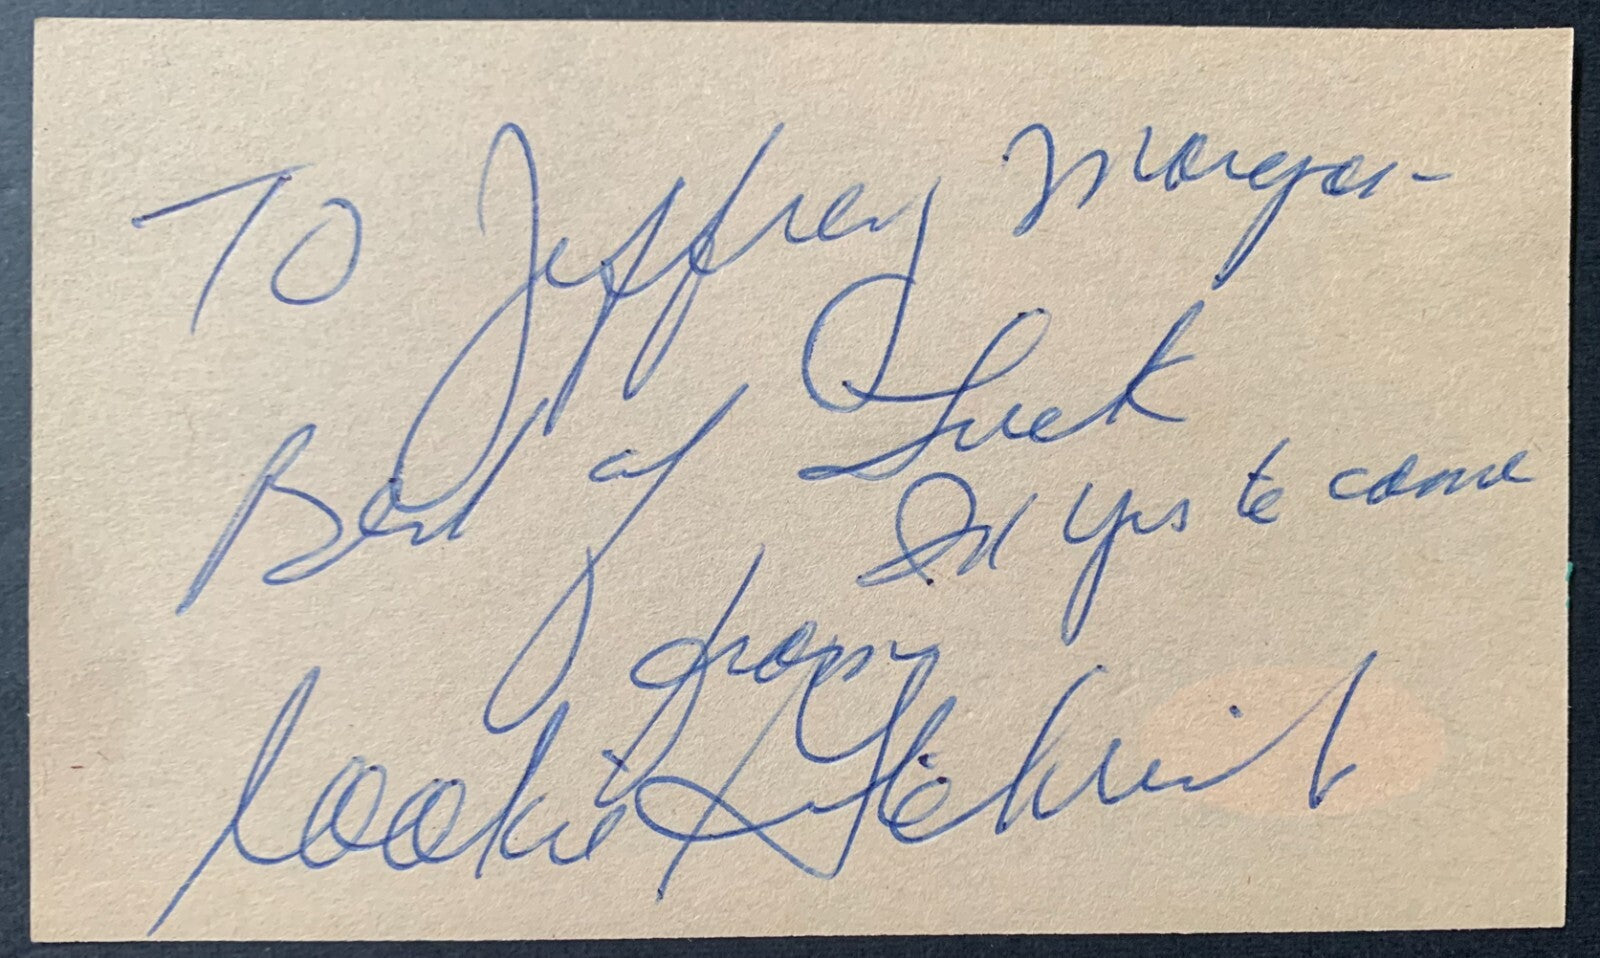 To Jeffrey Morgan-
Best of Luck
In Yrs to come
From
Cookie Gilchrist